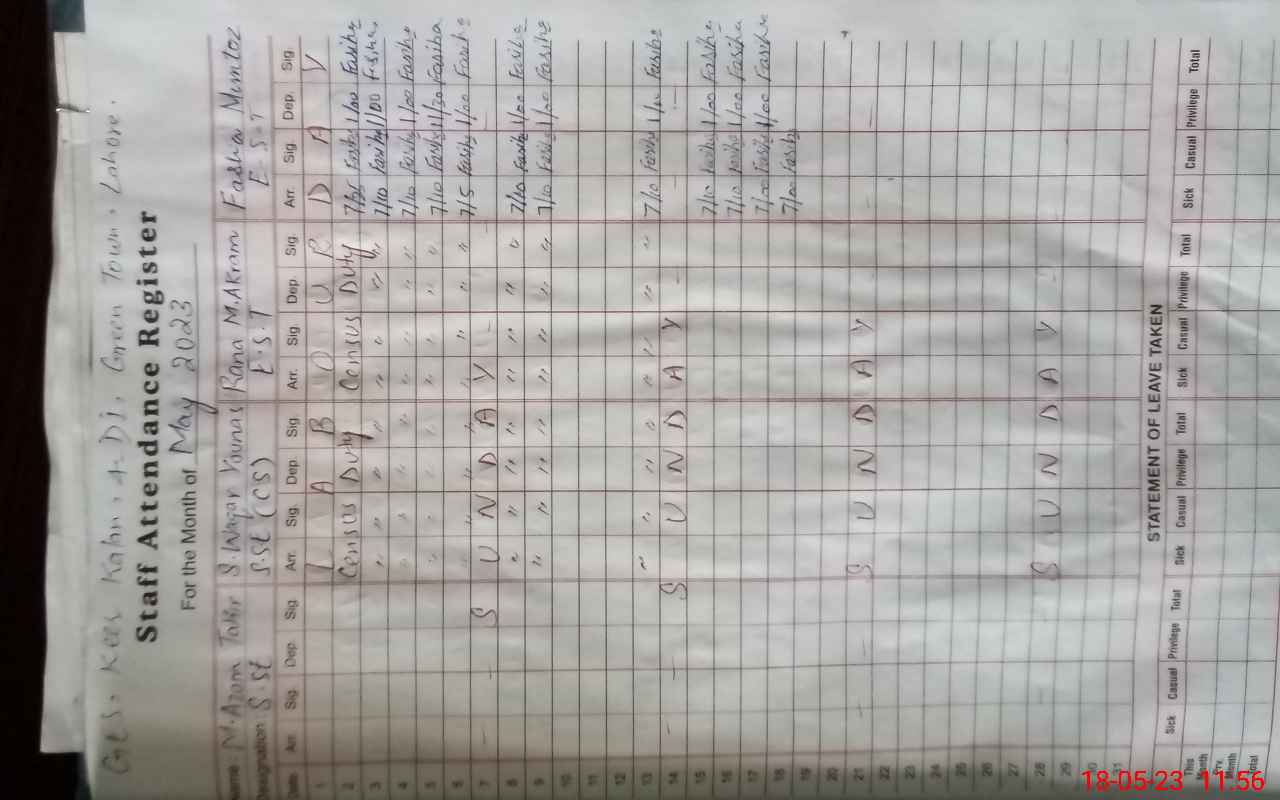 Staff Attendance Register
For the Month of May 2023
Name M. Azam Tahir S. Waqar Younas Rana M. Akram
Designation S.St S.St (CS) E.S.T E.S.T
Date Arr. Sig. Dep. Sig. Arr. Sig. Dep. Sig. Arr. Sig. Dep. Sig. Arr. Sig. Dep. Sig.
1 L A B O U R D A Y
2 Census Duty Census Duty 1/00 Fasiha
3 " " " " " " " " 7/10 Fasiha 1/00 Fasiha
4 " " " " " " " " 7/10 Fasiha 1/00 Fasiha
5 " " " " " " " " 7/10 Fasiha 1/20 Fasiha
6 " " " " " " " " 7/5 Fasiha 1/00 Fasiha
7 S U N D A Y
8 " " " " " " " " 7/10 Fasiha 1/00 Fasiha
9 " " " " " " " " 7/10 Fasiha 1/00 Fasiha
10
11
12
13 " " " " " " " " 7/10 Fasiha 1/10 Fasiha
14 S U N D A Y
15 7/10 Fasiha 1/00 Fasiha
16 7/10 Fasiha 1/00 Fasiha
17 7/00 Fasiha 1/00 Fasiha
18 7/00 Fasiha
19
20
21 S U N D A Y
22
23
24
25
26
27
28 S U N D A Y
29
30
31
STATEMENT OF LEAVE TAKEN
Sick Casual Privilege Total Sick Casual Privilege Total Sick Casual Privilege Total Sick Casual Privilege Total
This Month
Prv. Month
Total
18-05-23 11:56